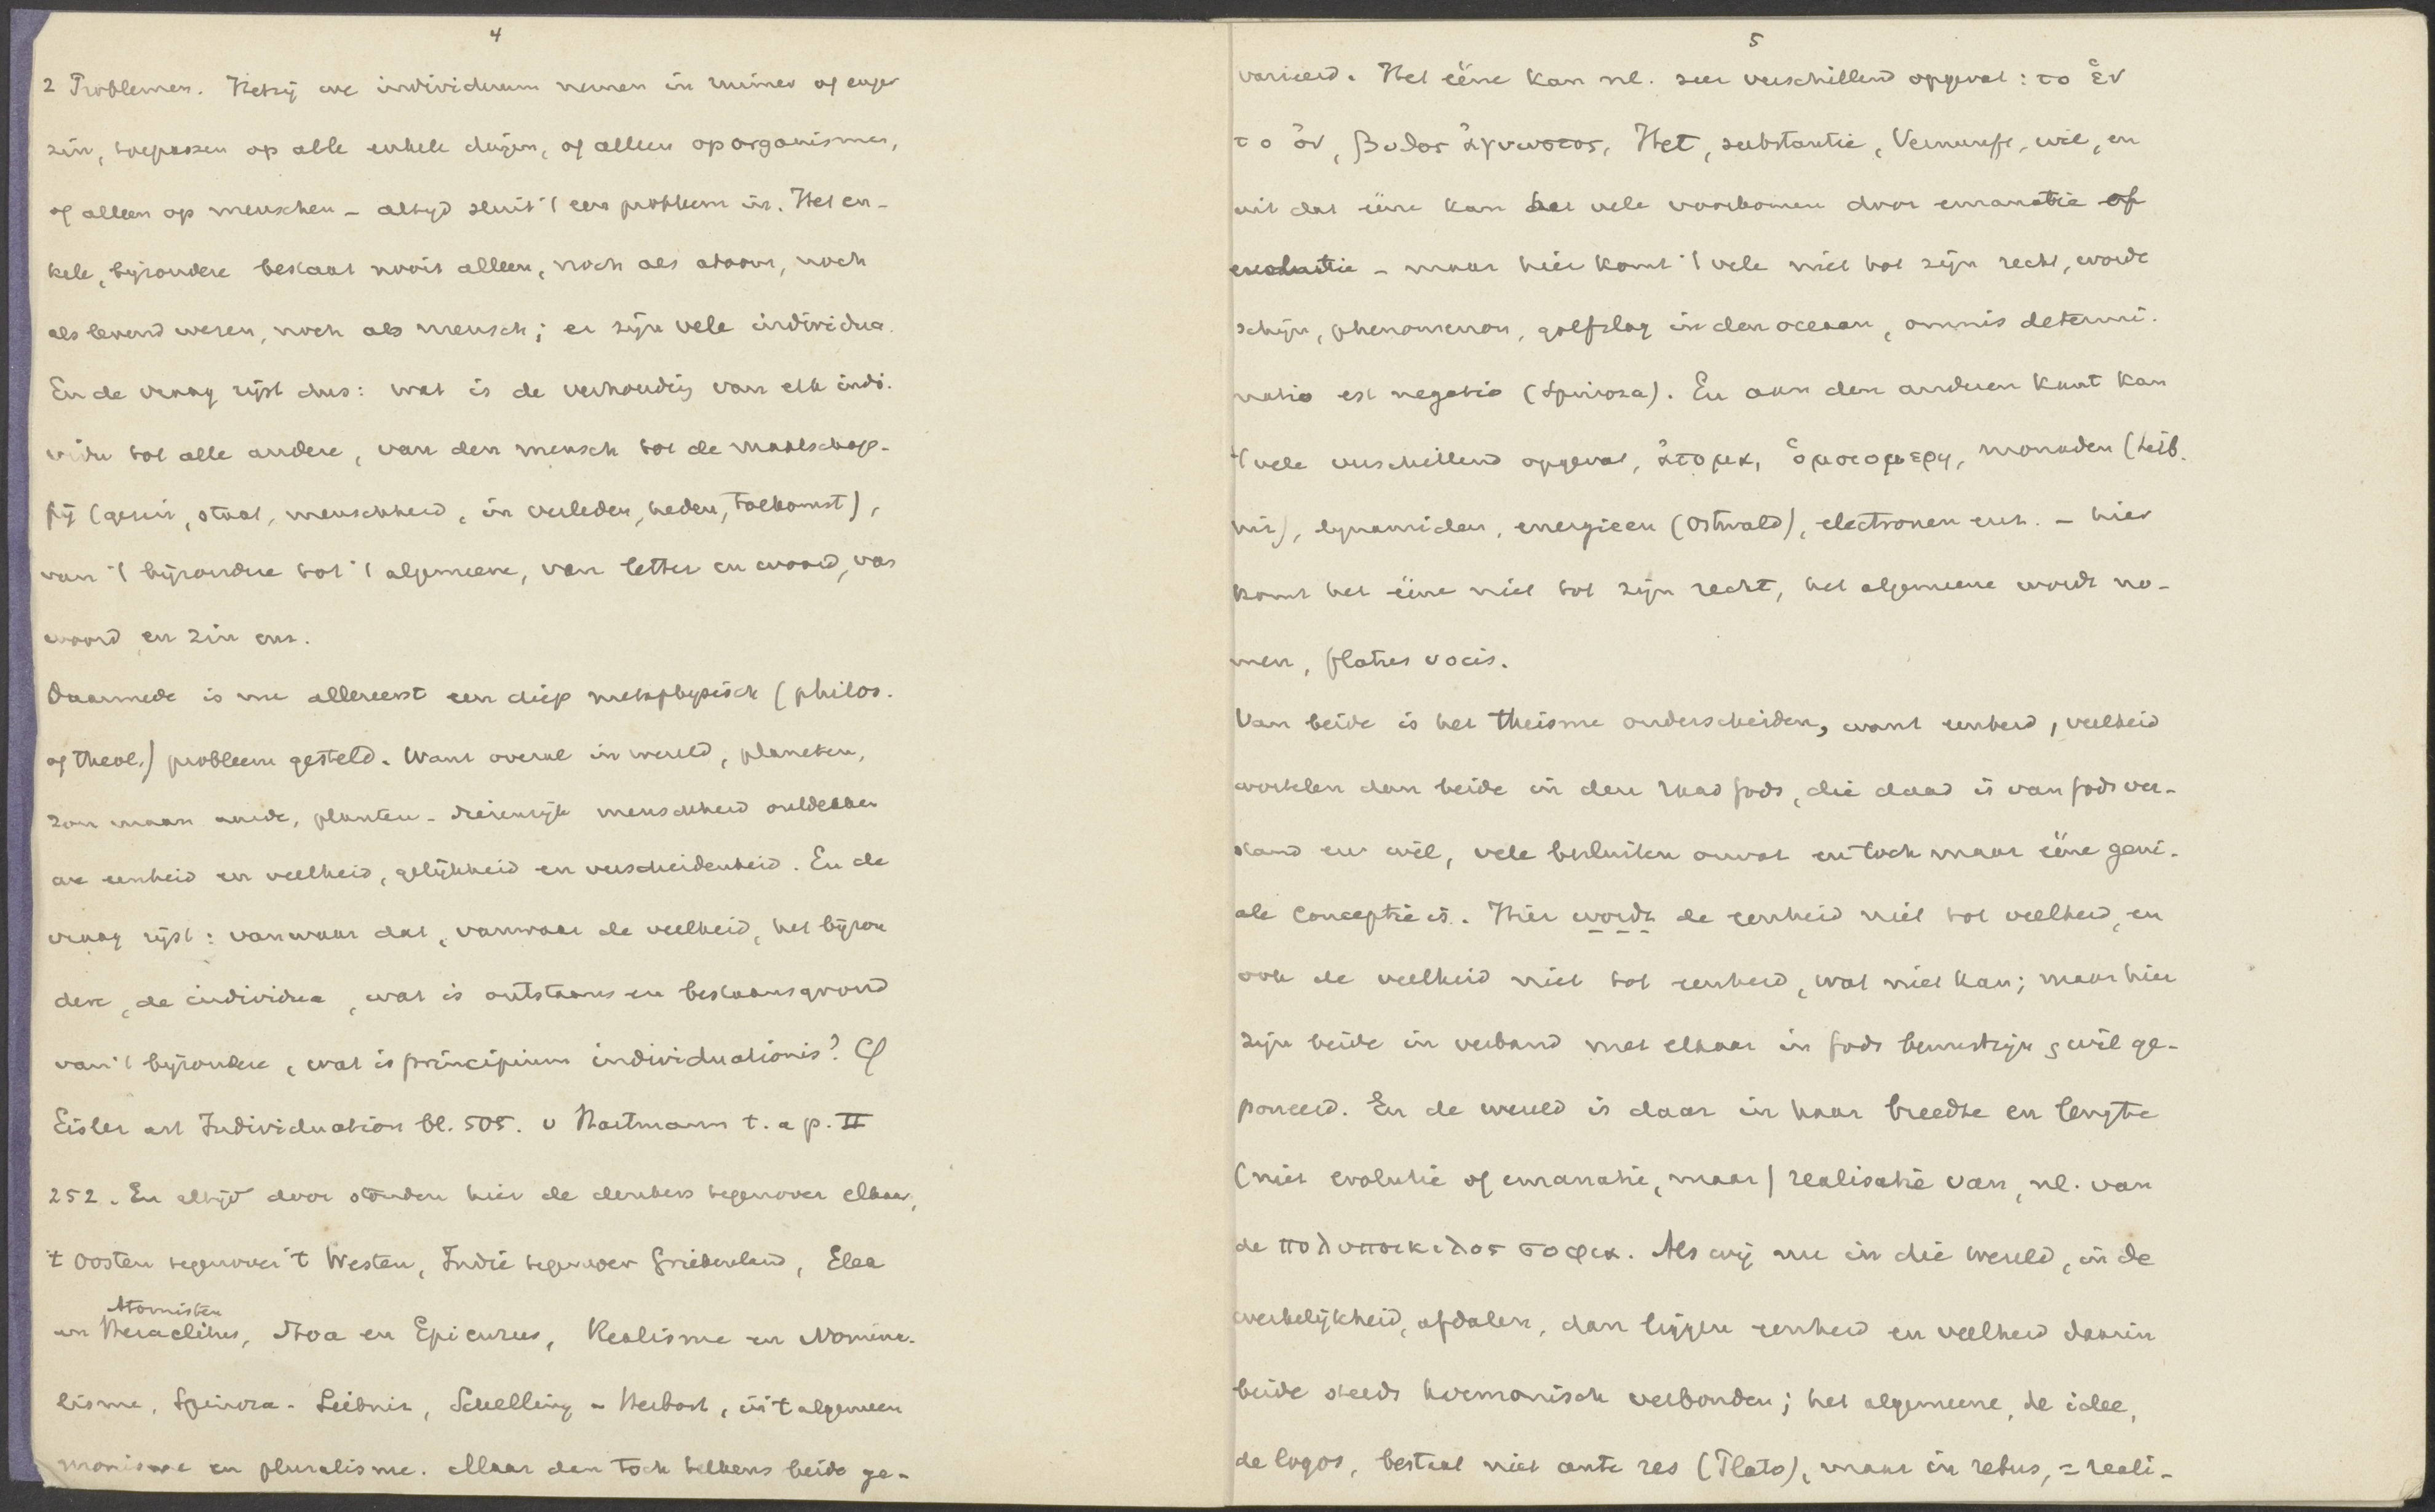 4
2 Problemen. Hetzij we individuum nemen in ruimer of enger
zin, toepassen op alle enkele dingen, of alleen op organismen,
of alleen op menschen – altijd sluit 't een probleem in. Het en-
kele, bijzondere bestaat nooit alleen, noch als atoom, noch
als levend wezen, noch als mensch; er zijn vele individua.
En de vraag rijst dus: wat is de verhouding van elk indi-
vidu tot alle andere, van den mensch tot de maatschap-
pij (gezin, staat, menschheid, in verleden, heden, toekomst),
van 't bijzondere tot 't algemeene, van letter en woord, van
woord en zin enz.
Daarmede is nu allereerst een diep metaphysisch (philos.
of theol.) probleem gesteld. Want overal in wereld, planeten,
zon maan aarde, planten- dierenrijk menschheid ontdekken
we eenheid en veelheid, gelijkheid en verscheidenheid. En de
vraag rijst: vanwaar dat, vanwaar de veelheid, het bijzon
dere, de individua, wat is ontstaans en bestaansgrond
van 't bijzondere, wat is principium individuationis? Cf
Eisler art Individuation bl. 505. v Hartmann t. a p. II
252. En altijd door stonden hier de denkers tegenover elkaar,
't Oosten tegenover 't Westen, Indië tegenover Griekenland, Elea
Atomisten
en Heraclitus, Stoa en Epicurus, Realisme en Nomina-
lisme, Spinoza - Leibniz, Schelling - Herbart, in 't algemeen
monisme en pluralisme. Maar dan toch telkens beide ge-
5
varieerd. Het ééne kan nl. zeer verschillend opgevat: το ἑν
το ὀν, βυθος ἀγνωστος, Het, substantie, Vernunft, wil, en
uit dat ééne kan het vele voortkomen door emanatie of
evolutie – maar hier komt 't vele niet tot zijn recht, wordt
schijn, phenomenon, golfslag in den oceaan, omnis determi-
natio est negatio (Spinoza). En aan den anderen kant kan
't vele verschillend opgevat, ἀτομα, ὁμοιομερη, monaden (Leib-
niz), dynamiden, energieen (Ostwald), electronen enz. – hier
komt het ééne niet tot zijn recht, het algemeene wordt no-
men, flatus vocis.
Van beide is het theisme onderscheiden, want eenheid, veelheid
wortelen dan beide in den raad Gods, die daad is van Gods ver-
stand en wil, vele besluiten omvat en toch maar ééne geni-
ale conceptie is. Hier wordt de eenheid niet tot veelheid, en
ook de veelheid niet tot eenheid, wat niet kan; maar hier
zijn beide in verband met elkaar in Gods bewustzijn & wil ge-
poneerd. En de wereld is daar in haar breedte en lengte
(niet evolutie of emanatie, maar) realisatie van, nl. van
de πολυποικιλος σοφια. Als wij nu in die wereld, in de
werkelijkheid, afdalen, dan liggen eenheid en veelheid daarin
beide steeds harmonisch verbonden; het algemeene, de idee,
de logos, bestaat niet ante res (Plato), maar in rebus, = reali-